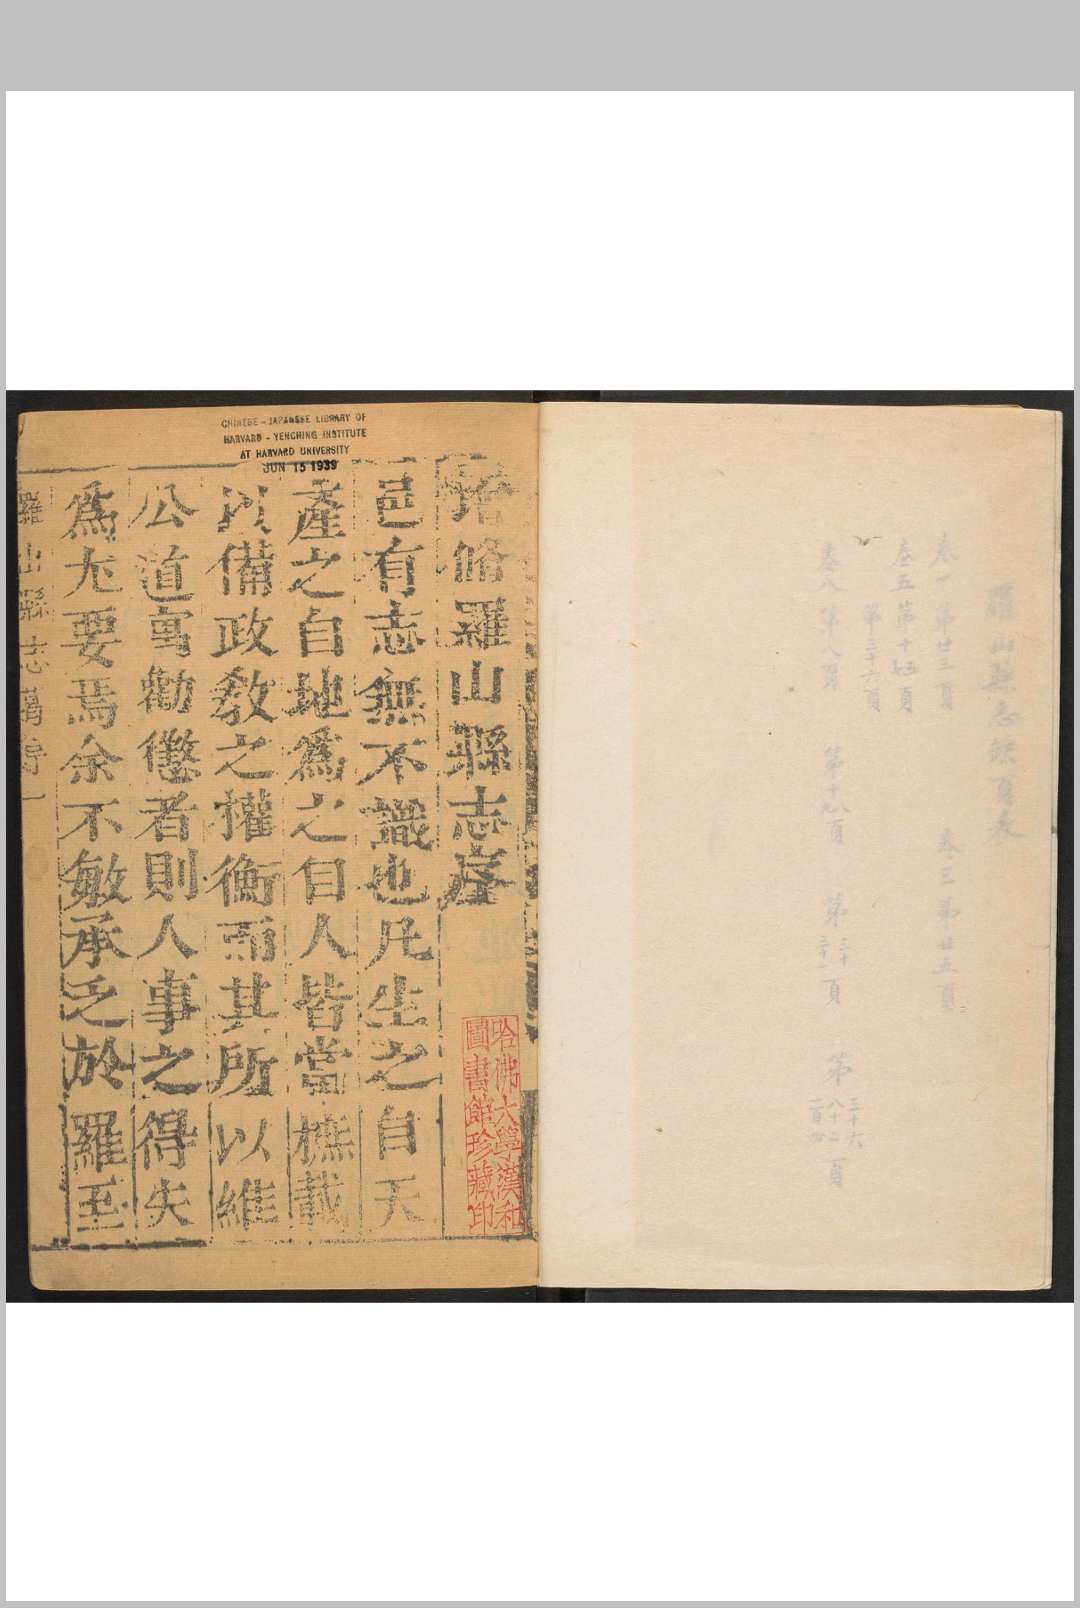 羅山縣志缺頁表
卷一 第廿三頁 卷三 第廿五頁
卷五 第十五頁
第三十六頁
卷八 第八頁 第十八頁 第三十 頁 第 頁
CHINESE - JAPANESE LIBRARY OF
HARVARD - YENCHING INSTITUTE
AT HARVARD UNIVERSITY
JUN 15 1939
脩羅山縣志序
哈佛大學漢和
圖書館珍藏印
邑有志無不識也凡生之自天
產之自地爲之自人皆當撫載
以備政教之權衡而其所以維
公道寓勸懲者則人事之得失
爲尤要焉余不敏承乏於羅至
羅山縣志舊序 一